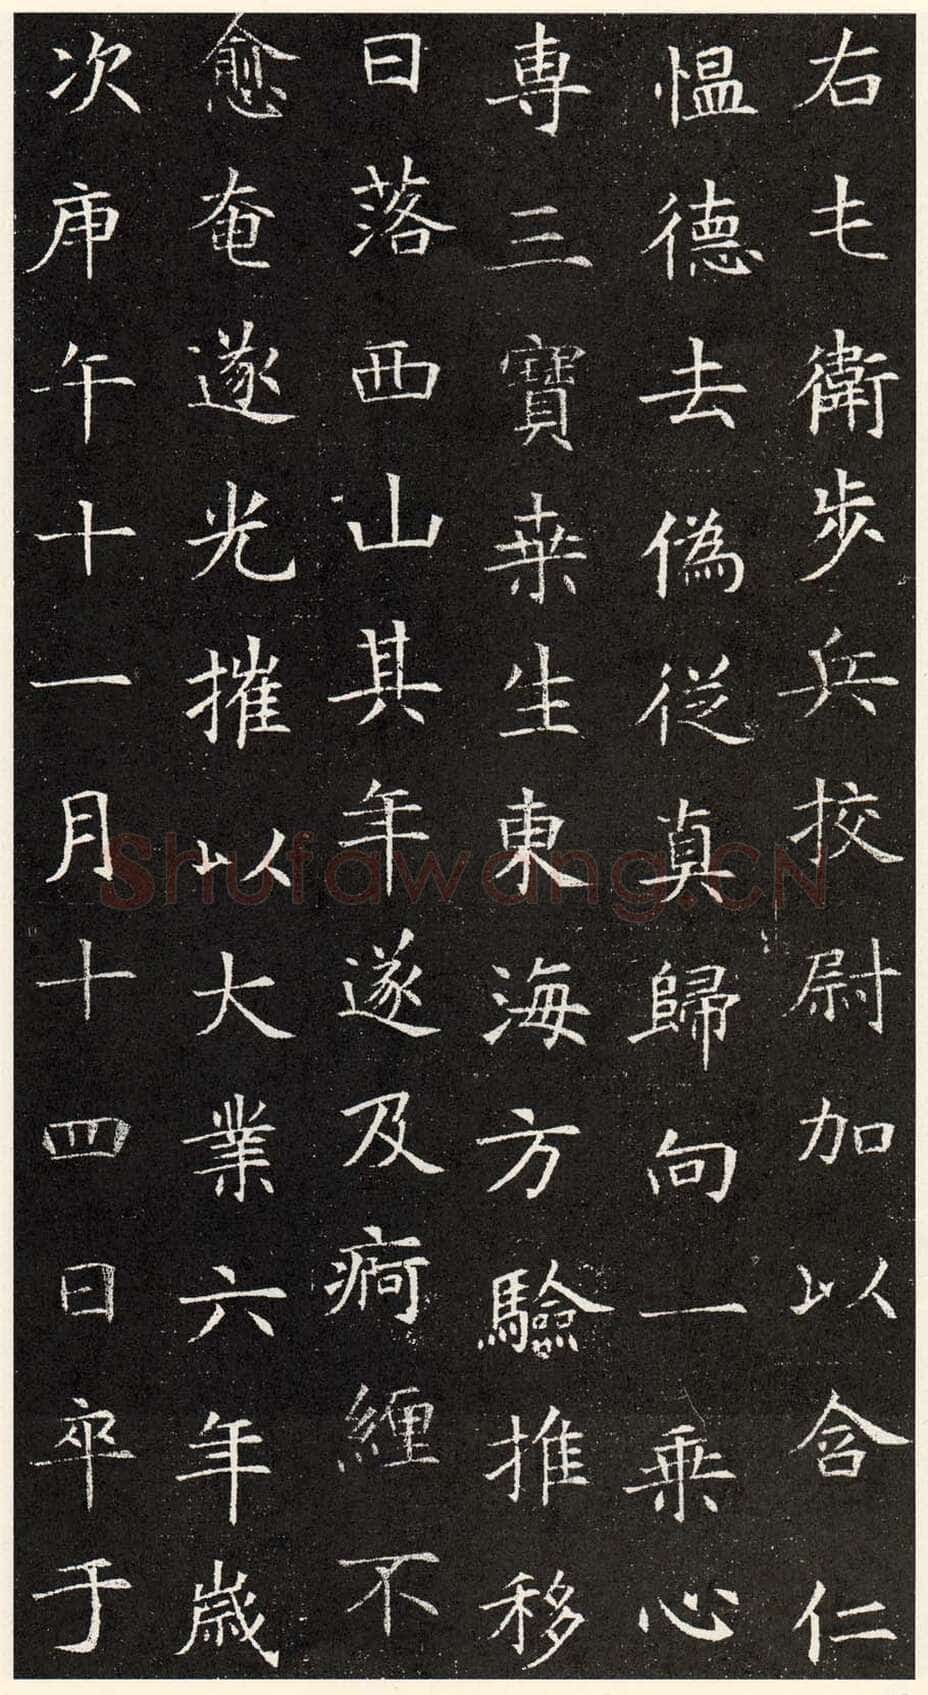 右屯衛步兵挍尉加以含仁
愠德去偽從真歸向一乘心
専三寶桒生東海方驗推移
日落西山其年遂及痾纏不
愈奄遂光摧以大業六年歲
次庚午十一月十四日卒于
Shufawang.CN